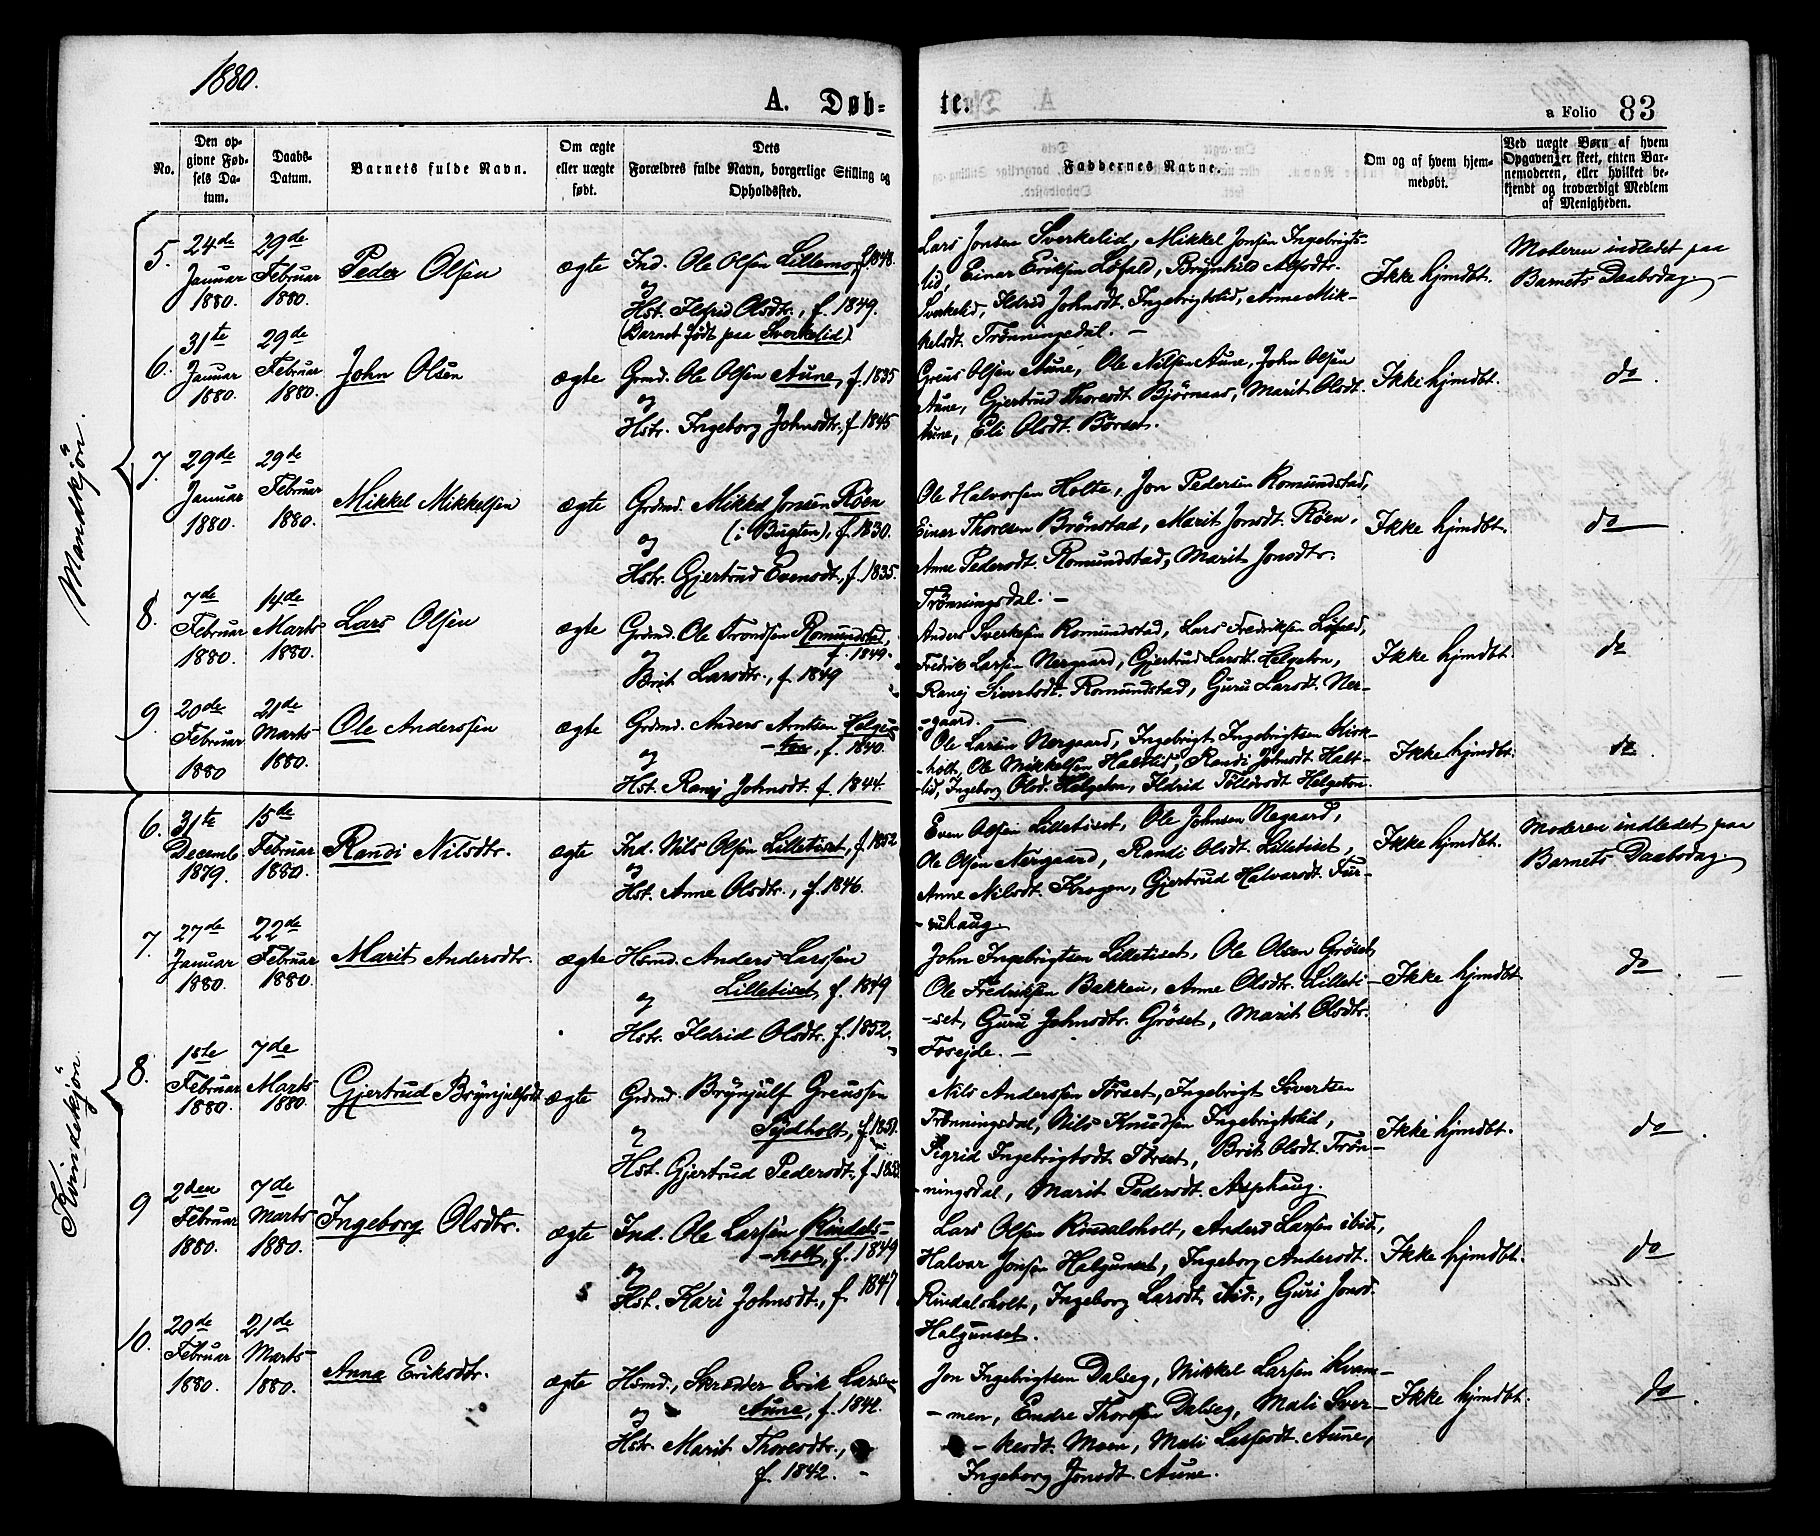 1880.
A. Døb-
te.
a Folio 83
No.
Den op-
givne Fød-
sels Da-
tum.
Daabs-
Datum.
Barnets fulde Navn.
Om ægte
eller uægte
født.
Dets
Forældres fulde Navn, borgerlige Stilling og
Opholdssted.
Faddernes Navne.
Om og af hvem hjem-
medøbt.
Ved uægte Børn af hvem
Opgaven er skeet, enten Bar-
nemoderen, eller hvilket be-
kjendt og troværdigt Medlem
af Menigheden.
Mandkjøn.
5.
24de
Januar
1880.
29de
Februar
1880.
Peder Olsen
ægte
Ind. Ole Olsen Lillemo, f. 1848.
og
Hst. Ildrid Olsdtr., f. 1849.
(Barnet født paa Sverkelid)
Lars Jonsen Sverkelid, Mikkel Jonsen Ingebrigts-
lid, Einar Eriksen Løfald, Brynhild
Sverkelid, Ildrid Johnsdt. Ingebrigtslid, Anne Mik-
kelsdt. Trønningsdal. —
Ikke hjmdbt.
Moderen indledet paa
Barnets Daabsdag. —
6.
31te
Januar
1880.
29de
Februar
1880.
John Olsen
ægte
Grmd. Ole Olsen Aune, f. 1835
og
Hstr. Ingeborg Johnsdtr., f. 1845
Greus Olsen Aune, Ole Nilsen Aune, John Olsen
Aune, Gjertrud Thoresdt. Bjørnaas, Marit Olsdt.
Aune, Eli Olsdt. Børset.
Ikke hjmdbt.
do.
7.
29de
Januar
1880.
29de
Februar
1880.
Mikkel Mikkelsen
ægte
Grdmd. Mikkel Jonsen Røen
(i Bugten), f. 1830.
og
Hstr. Gjertrud Evensdt., f. 1835.
Ole Halvorsen Holte, Jon Pedersen Romundstad,
Einar Thoresen Brønstad, Marit Jonsdt. Røen,
Anne Pedersdt. Romundstad, Marit Jonsdtr.
Trønningsdal. —
Ikke hjmdbt.
do
8.
7de
Februar
1880.
14de
Marts
1880.
Lars Olsen
ægte
Grdmd. Ole Trondsen Romundstad,
f. 1849.
og
Brit Larsdtr., f. 1849
Anders Sverkesen Romundstad, Lars Fredriksen Løfald,
Fredrik Larsen Nergaard, Gjertrud Larsdt. Helgeton,
Ranej Sivertsdt. Romundstad, Guru Larsdt. Ner-
-gaard. —
Ikke hjmdbt.
do
9.
20de
Februar
1880
21de
Marts
1880.
Ole Anderssen
ægte
Grdmd. Anders Arntsen Helge-
-ton, f. 1840.
og
Hst. Ranej Johnsdt. f. 1844.
Ole Larsen Nergaard, Ingebrigt Ingebrigtsen Kirk-
-holt, Ole Mikkelsen Haltlid, Randi Johnsdt. Halt-
-lid, Ingeborg Olsd. Helgeton, Ildrid Helgeton.
Ikke hjmdbt.
do
Kvindekjøn.
6.
31te
Decembr
1879.
15de
Februar
1880.
Randi Nilsdtr.
ægte
Ind. Nils Olsen Lilletiset, f. 1852
og
Hst. Anne Olsdtr., f. 1846.
Even Olsen Lilletiset, Ole Johnsen Negaard,
Ole Olsen Nergaard, Randi Olsdt. Lilletiset,
Anne Nilsdt. Krogen, Gjertrud Halvarsdt. Fur-
-ruhaug.
Ikke hjmdbt.
Moderen indledet paa
Barnets Daabsdag.
7.
27de
Januar
1880.
22de
Februar
1880.
Marit Andersdtr.
ægte
Hsmd. Anders Larssen
Lilletiset, f. 1849
og
Hstr. Ildrid Olsdtr. f. 1852.
John Ingebrigtsen Lilletiset, Ole Olsen Grøset,
Ole Fredriksen Bakken, Anne Olsdtr. Lilleti-
-set, Guru Johnsdtr. Grøset, Marit Olsdtr.
Fosejde. —
Ikke hjmdbt
do. —
8.
1ste
Februar
1880.
7de
Marts
1880.
Gjertrud Brynjulfsdt.
ægte
Grdmd. Brynjulf Greussen
Sydholt, f. 1851.
og
Hst. Gjertrud Pedersdt. f. 1853
Nils Anderssen Tørset, Ingebrigt Sivertsen
Trønningsdal, Nils Knudsen Ingebrigtslid,
Sigrid Ingebrigtsdt. Tørset, Brit Olsdt. Trøn-
-ningsdal, Marit Pedersdt. Asphaug.
Ikke hjmdbt.
do
9
2den
Februar
1880.
7de
Marts
1880.
Ingeborg Olsdtr.
ægte
Ind. Ole Larsen Rindals-
-holt, f. 1849
og
Hst. Kari Johnsdt., f. 1847
Lars Olsen Rindalsholt, Anders Larsen ibid.,
Halvar Jonsen Halgunset, Ingeborg Andersdt.
Rindalsholt, Ingeborg Larsdt. ibid., Guri Jonsd.
Halgunset.
Ikke hjmdbt.
do
10.
20de
Februar
1880.
21de
Marts
1880.
Anne Eriksdtr.
ægte
Hsmd., Skræder Erik Larsen
Aune, f. 1842.
og
Hstr. Marit Thoresdtr.,
f. 1842. —
Jon Ingebrigtsen Dalseg, Mikkel Larsen Kvam-
-men, Endre Thorsen Dalseg, Mali Sver-
-kesdt. Moen, Mali Larsesdt. Aune,
Ingeborg Jonsdt. Aune.
Ikke hjmdbt.
do